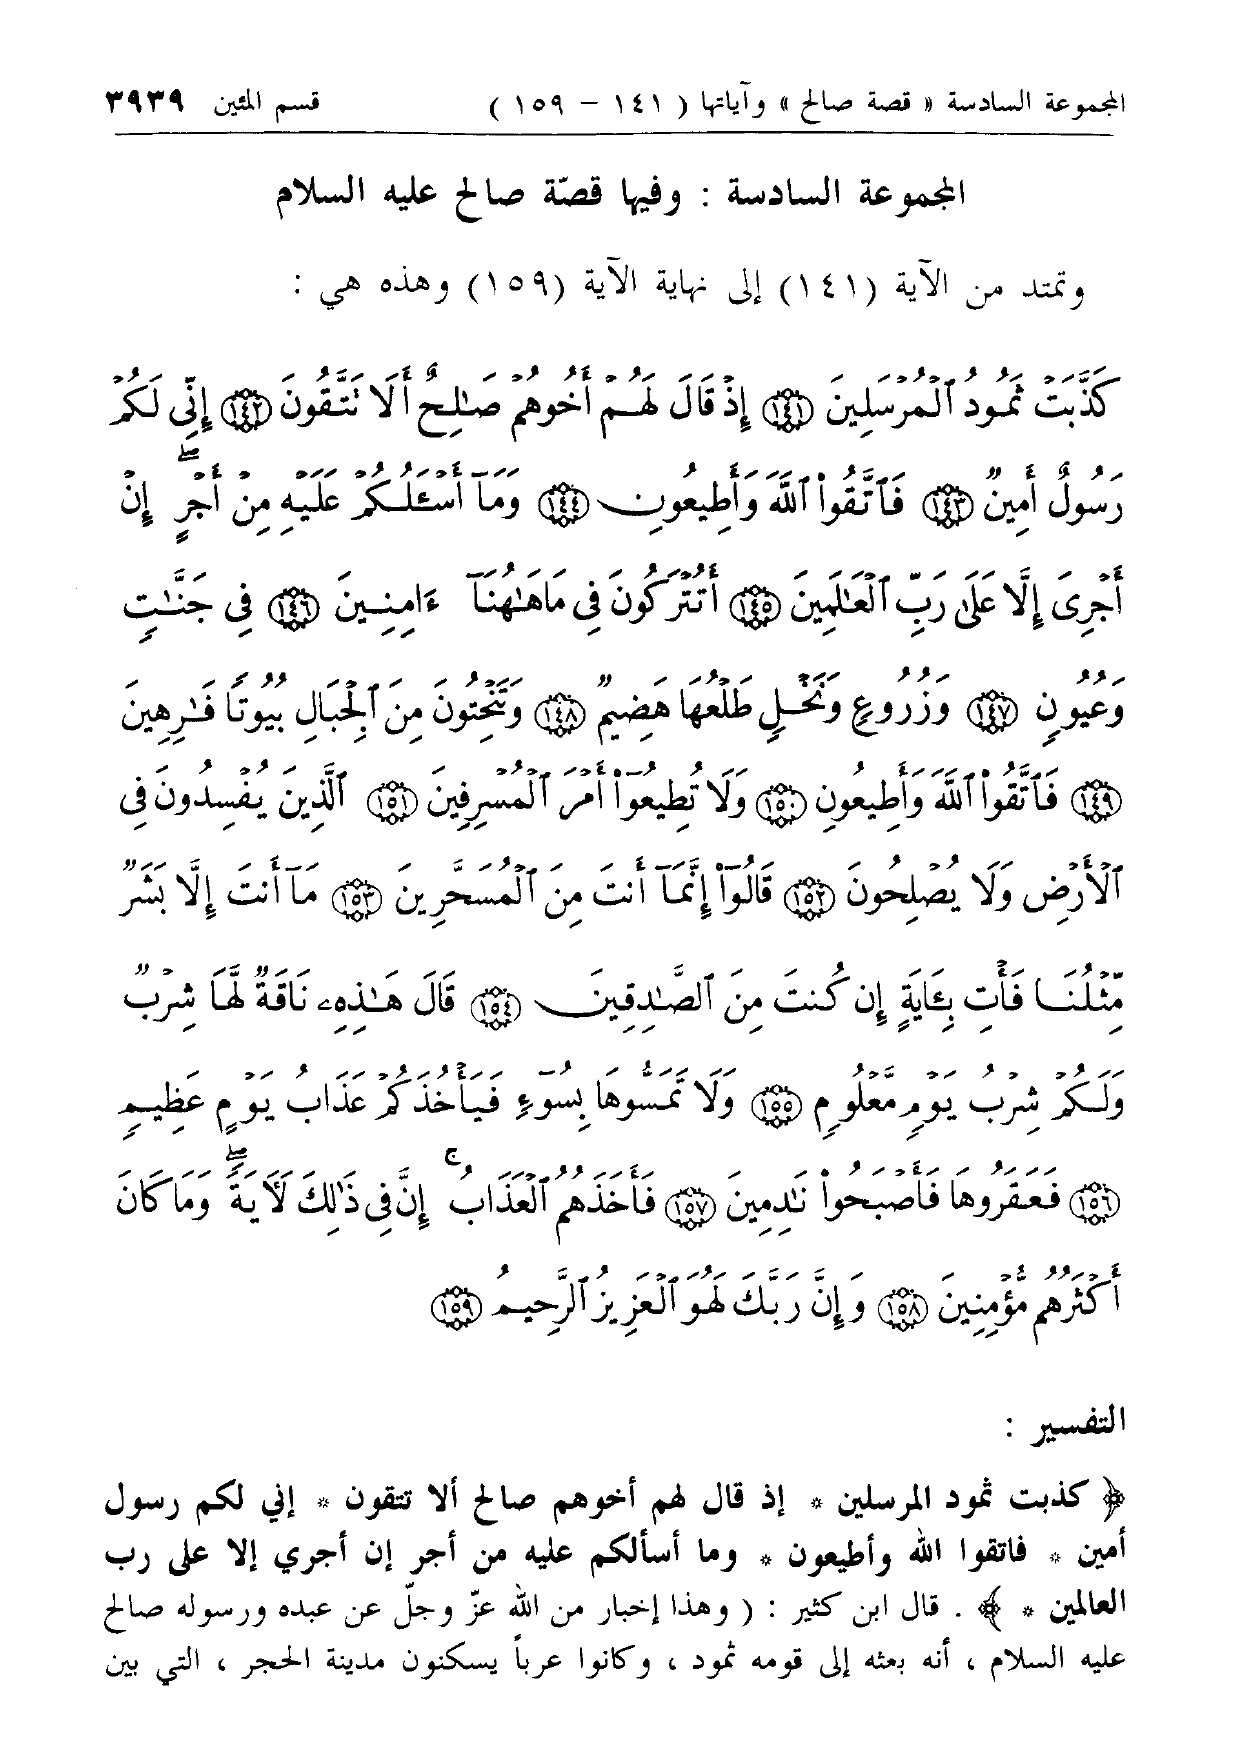 المجموعة السادسة « قصة صالح » وآياتها ( ١٤١ – ١٥٩ ) قسم المئين ٣٩٣٩
المجموعة السادسة : وفيها قصّة صالح عليه السلام
وتمتد من الآية (١٤١) إلى نهاية الآية (١٥٩) وهذه هي :
كَذَّبَتْ ثَمُودُ ٱلْمُرْسَلِينَ ١٤١ إِذْ قَالَ لَهُمْ أَخُوهُمْ صَـٰلِحٌ أَلَا تَتَّقُونَ ١٤٢ إِنِّى لَكُمْ
رَسُولٌ أَمِينٌ ١٤٣ فَٱتَّقُوا۟ ٱللَّهَ وَأَطِيعُونِ ١٤٤ وَمَآ أَسْـَٔلُكُمْ عَلَيْهِ مِنْ أَجْرٍ ۖ إِنْ
أَجْرِىَ إِلَّا عَلَىٰ رَبِّ ٱلْعَـٰلَمِينَ ١٤٥ أَتُتْرَكُونَ فِى مَا هَـٰهُنَآ ءَامِنِينَ ١٤٦ فِى جَنَّـٰتٍ
وَعُيُونٍ ١٤٧ وَزُرُوعٍ وَنَخْلٍ طَلْعُهَا هَضِيمٌ ١٤٨ وَتَنْحِتُونَ مِنَ ٱلْجِبَالِ بُيُوتًا فَـٰرِهِينَ
١٤٩ فَٱتَّقُوا۟ ٱللَّهَ وَأَطِيعُونِ ١٥٠ وَلَا تُطِيعُوٓا۟ أَمْرَ ٱلْمُسْرِفِينَ ١٥١ ٱلَّذِينَ يُفْسِدُونَ فِى
ٱلْأَرْضِ وَلَا يُصْلِحُونَ ١٥٢ قَالُوٓا۟ إِنَّمَآ أَنتَ مِنَ ٱلْمُسَحَّرِينَ ١٥٣ مَآ أَنتَ إِلَّا بَشَرٌ
مِّثْلُنَا فَأْتِ بِـَٔايَةٍ إِن كُنتَ مِنَ ٱلصَّـٰدِقِينَ ١٥٤ قَالَ هَـٰذِهِۦ نَاقَةٌ لَّهَا شِرْبٌ
وَلَكُمْ شِرْبُ يَوْمٍ مَّعْلُومٍ ١٥٥ وَلَا تَمَسُّوهَا بِسُوٓءٍ فَيَأْخُذَكُمْ عَذَابُ يَوْمٍ عَظِيمٍ
١٥٦ فَعَقَرُوهَا فَأَصْبَحُوا۟ نَـٰدِمِينَ ١٥٧ فَأَخَذَهُمُ ٱلْعَذَابُ ۚ إِنَّ فِى ذَٰلِكَ لَـَٔايَةً ۖ وَمَا كَانَ
أَكْثَرُهُم مُّؤْمِنِينَ ١٥٨ وَإِنَّ رَبَّكَ لَهُوَ ٱلْعَزِيزُ ٱلرَّحِيمُ ١٥٩
التفسير :
﴿ كذبت ثمود المرسلين * إذ قال لهم أخوهم صالح ألا تتقون * إني لكم رسول
أمين * فاتقوا الله وأطيعون * وما أسألكم عليه من أجر إن أجري إلا على رب
العالمين * ﴾ . قال ابن كثير : ( وهذا إخبار من الله عزّ وجلّ عن عبده ورسوله صالح
عليه السلام ، أنه بعثه إلى قومه ثمود ، وكانوا عرباً يسكنون مدينة الحجر ، التي بين